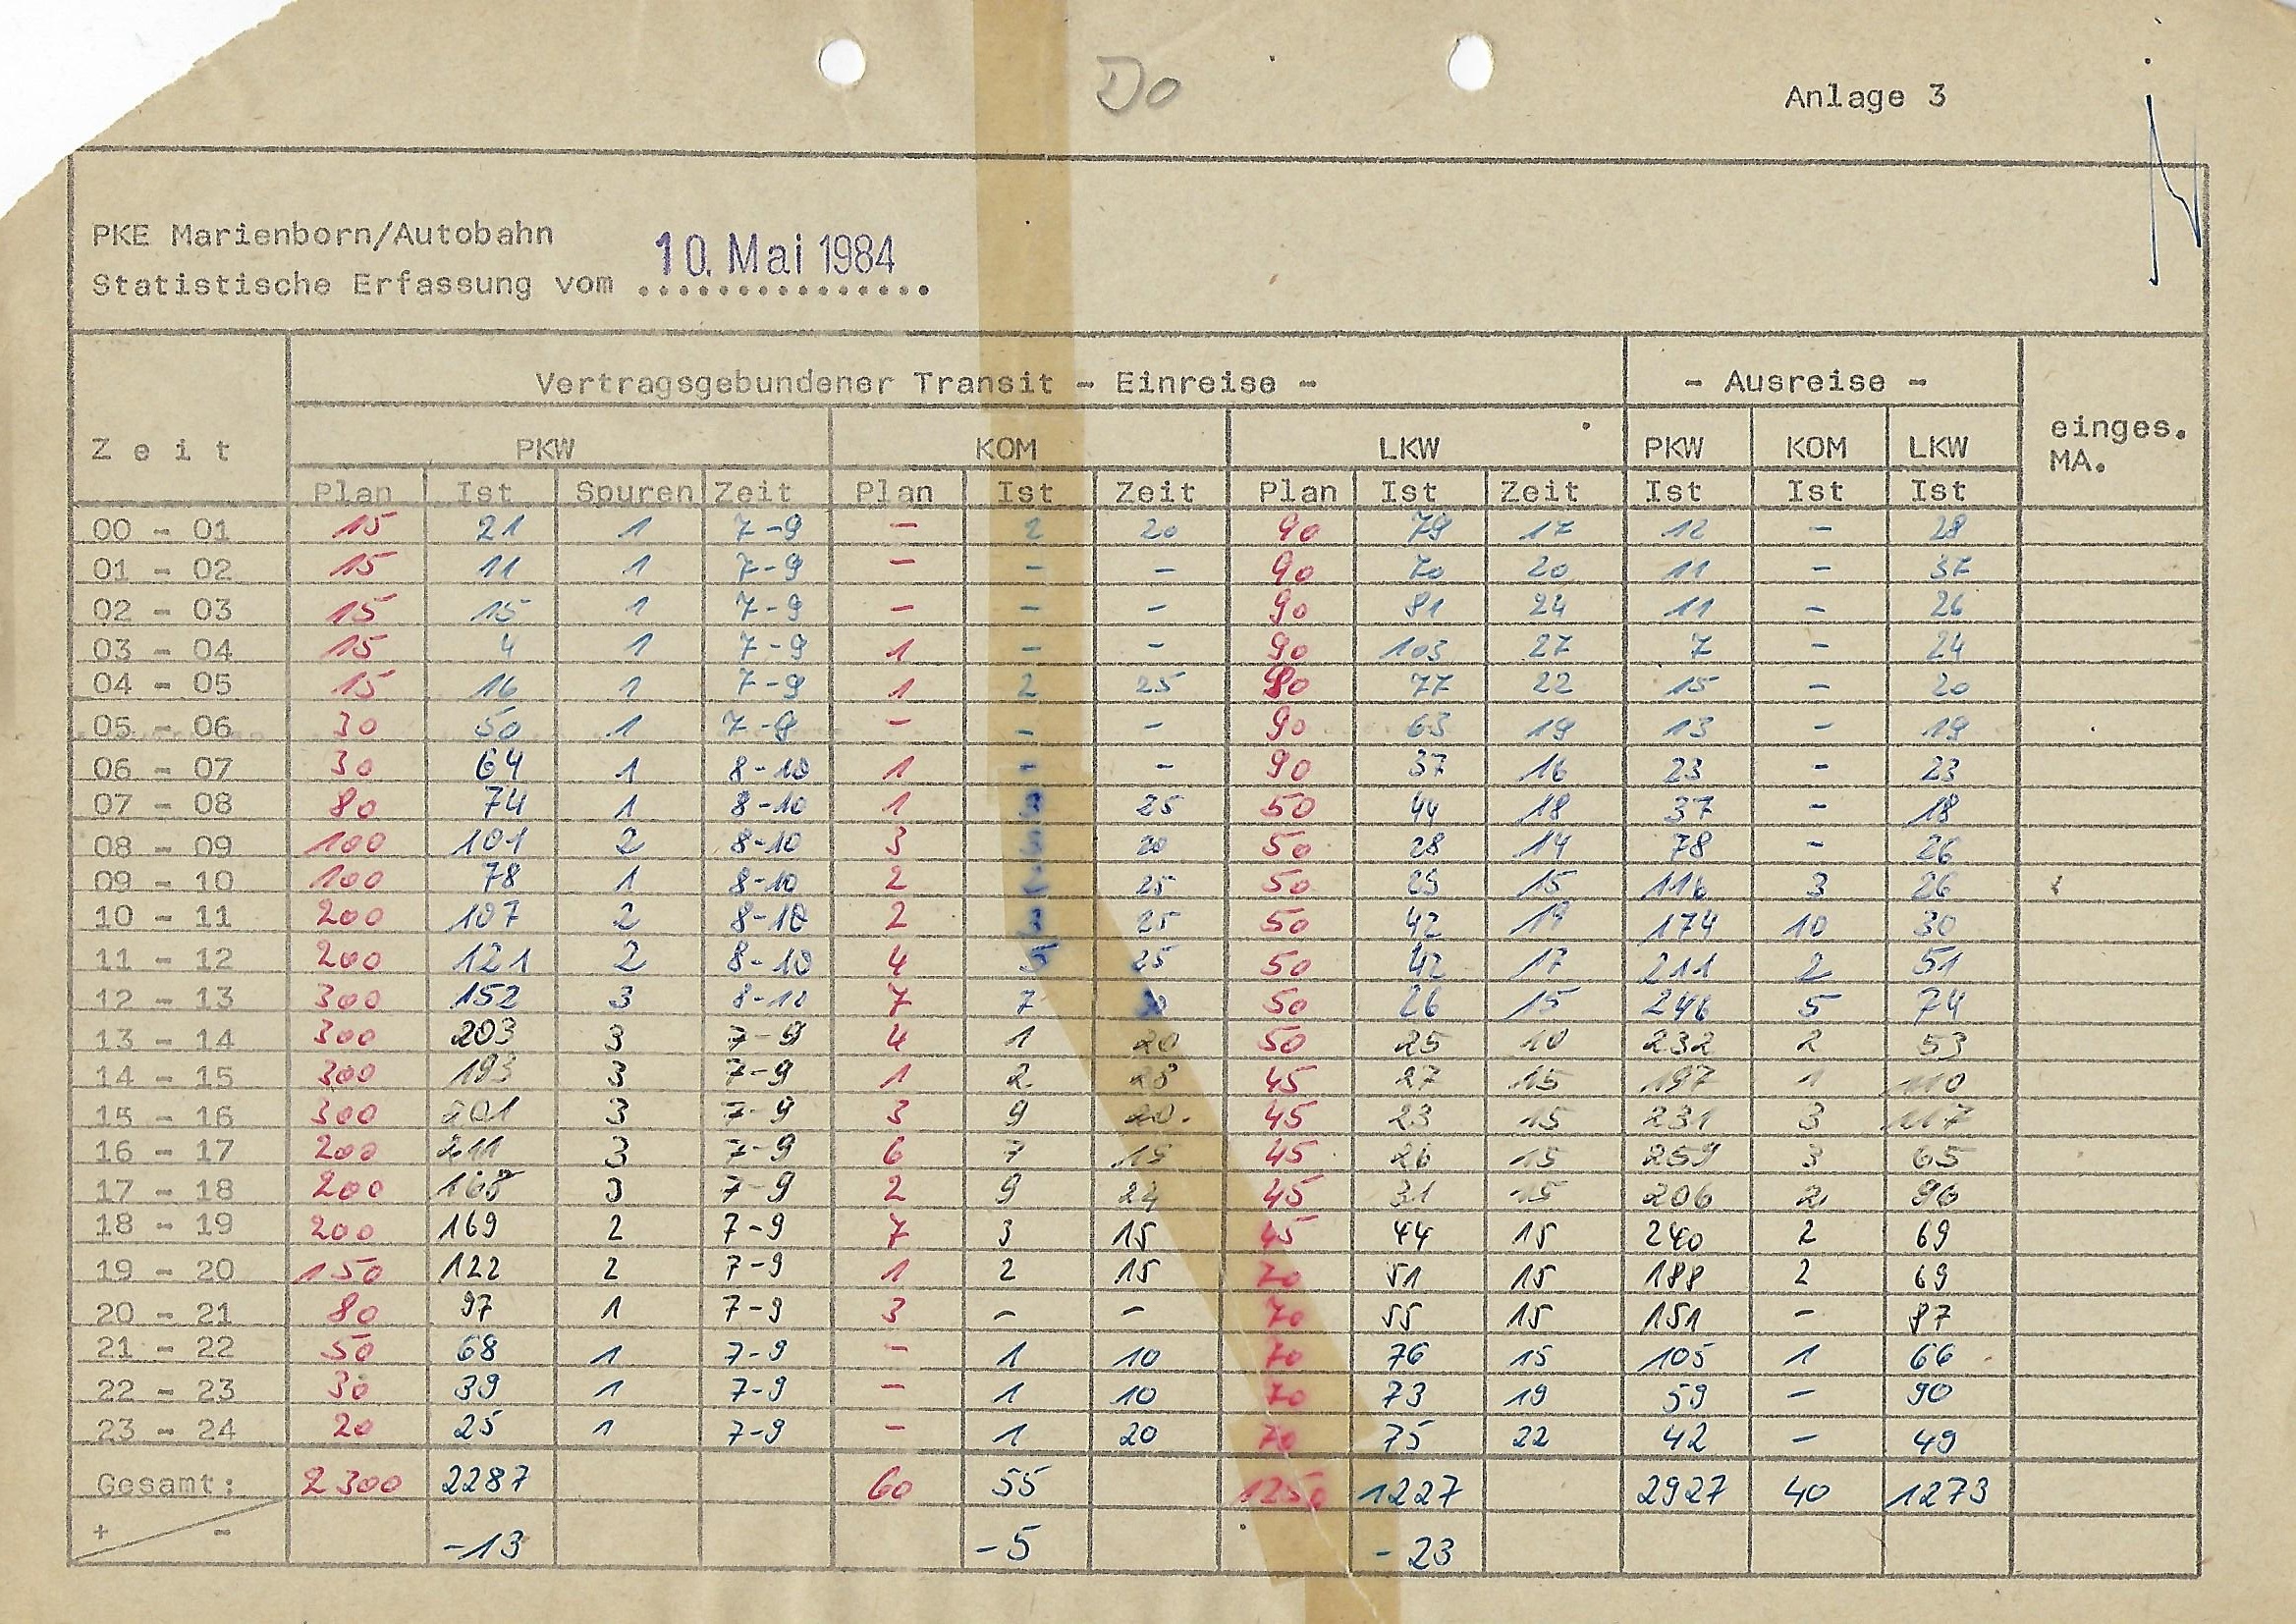 Do
Anlage 3
PKE Marienborn/Autobahn
Statistische Erfassung vom 10. Mai 1984
Vertragsgebundener Transit - Einreise - - Ausreise -
Zeit PKW KOM LKW PKW KOM LKW einges. MA.
Plan Ist Spuren Zeit Plan Ist Zeit Plan Ist Zeit Ist Ist Ist
00 - 01 15 21 1 7-9 - 2 20 90 79 17 12 - 28
01 - 02 15 11 1 7-9 - - - 90 70 20 11 - 37
02 - 03 15 15 1 7-9 - - - 90 81 24 11 - 26
03 - 04 15 4 1 7-9 1 - - 90 103 27 7 - 24
04 - 05 15 16 1 7-9 1 2 25 77 22 15 - 20
05 - 06 30 50 1 7-9 - - - 90 63 19 13 - 19
06 - 07 30 64 1 8-10 1 - - 90 37 16 23 - 23
07 - 08 80 74 1 8-10 1 3 25 50 44 18 37 - 18
08 - 09 100 101 2 8-10 3 20 50 28 14 78 - 26
09 - 10 100 78 1 8-10 2 25 50 15 116 3 26
10 - 11 200 107 2 8-10 2 3 25 50 42 19 174 10 30
11 - 12 200 121 2 8-10 4 5 25 50 42 17 211 2 51
12 - 13 300 152 3 8-10 7 7 50 26 15 246 5 74
13 - 14 300 203 3 7-9 4 1 20 50 25 10 232 2 53
14 - 15 300 193 3 7-9 1 2 28 45 27 15 197 1 110
15 - 16 300 201 3 7-9 3 9 20. 45 23 15 231 3 117
16 - 17 200 211 3 7-9 6 7 15 45 26 15 259 3 65
17 - 18 200 3 7-9 2 9 24 45 31 15 206 2 96
18 - 19 200 169 2 7-9 7 3 15 45 44 15 240 2 69
19 - 20 150 122 2 7-9 1 2 15 70 51 15 188 2 69
20 - 21 80 97 1 7-9 3 - - 70 55 15 151 - 87
21 - 22 50 68 1 7-9 - 1 10 70 76 15 105 1 66
22 - 23 30 39 1 7-9 - 1 10 70 73 19 59 - 90
23 - 24 20 25 1 7-9 - 1 20 70 75 22 42 - 49
Gesamt: 2300 2287 60 55 1250 1227 2927 40 1273
+ - -13 -5 -23